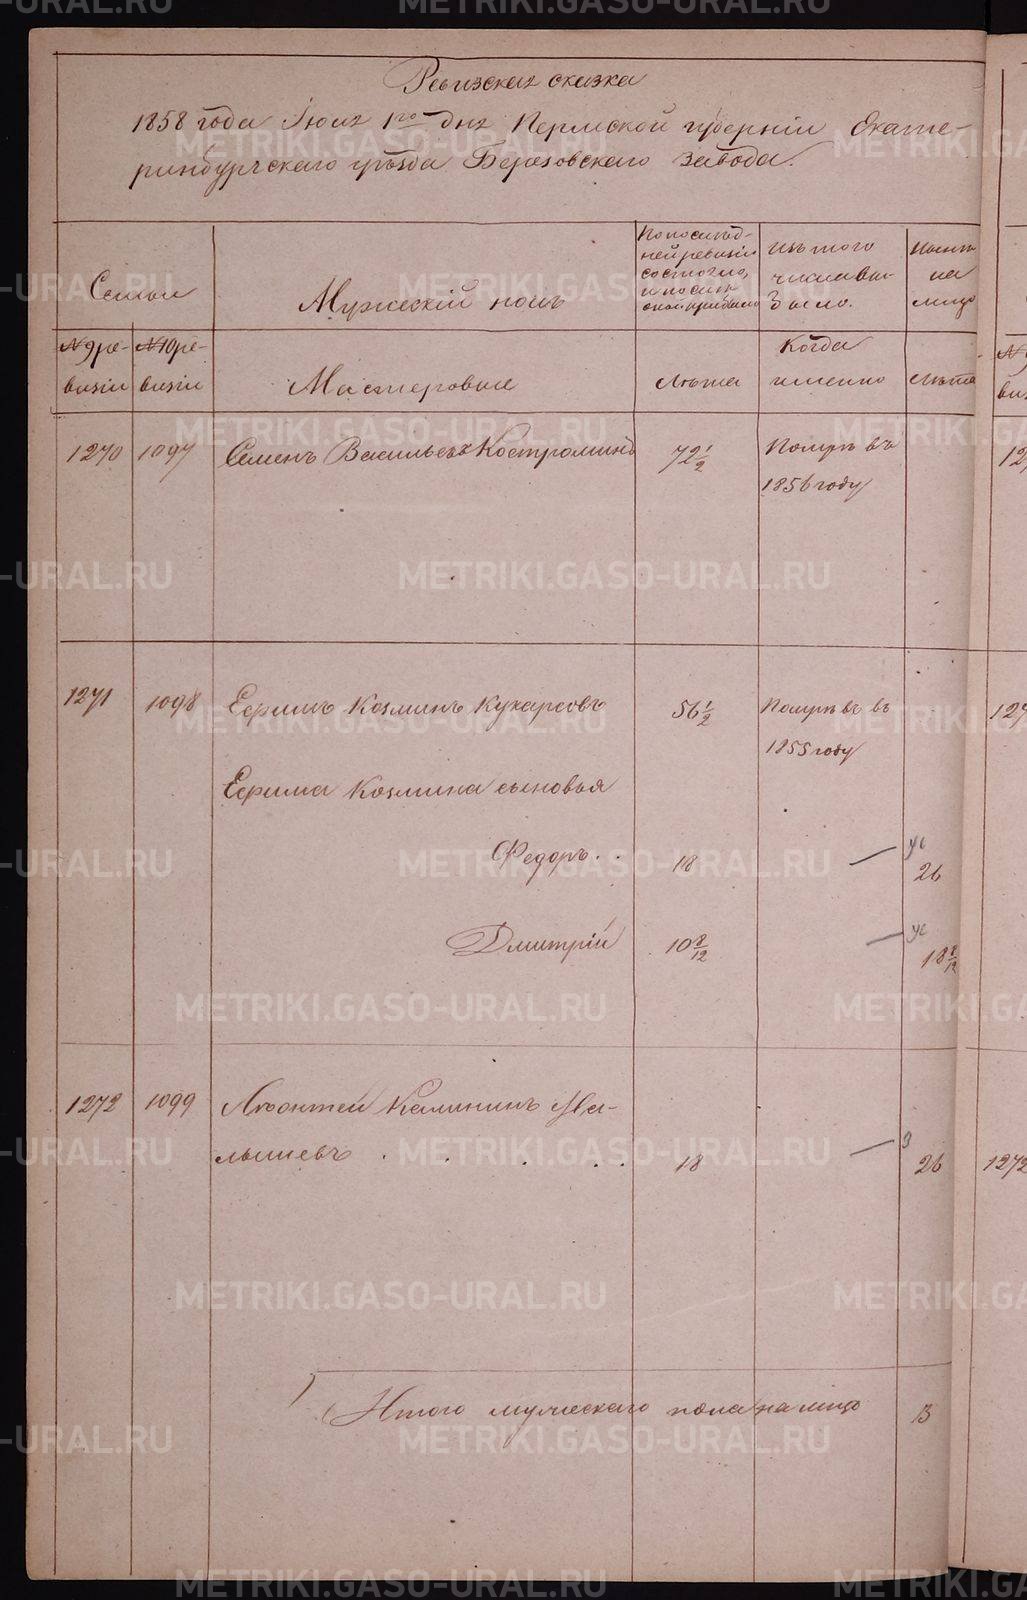 Ревизская сказка
1858 года Июля 1го дня Пермской губерніи Екате-
ринбургскаго уѣзда Березовскаго завода.
Семьи
Мужескій полъ
По послѣд-
ней ревизіи
состояло,
и послѣ
оной прибыло
Изъ того
числа вы-
было.
Нынѣ
на
лицо
№ 9 ре-
визіи
№ 10 ре-
визіи
Мастеровые
Лѣта
Когда
именно
Лѣта
1270 1097 Семенъ Васильевъ Костроминъ 72 1/2 Померъ въ
1856 году
1271 1098 Ефимъ Козминъ Кухарсовъ 56 1/2 Померъ въ въ
1855 году
Ефима Козмина сыновья
Федоръ . . 18 ус 26
Дмитрій 10 8/12 ус 18 8/12
1272 1099 Леонтей Калининъ
. . . . . 18 3 26 1272
Итого мужескаго пола на лицо 3
METRIKI.GASO-URAL.RU